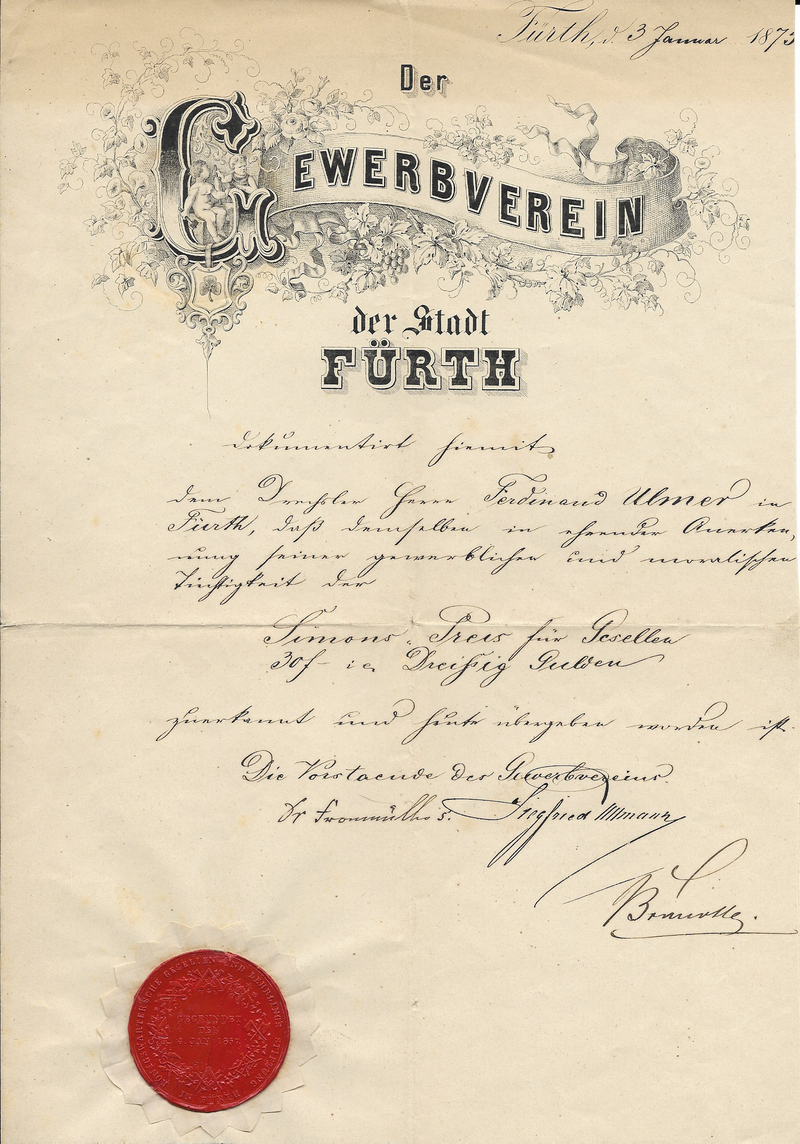 Fürth, d. 3 Januar 1873
Der
GEWERBVEREIN
der Stadt
FÜRTH
dokumentirt hiemit
dem Drechsler Herrn Ferdinand Ulmer in
Fürth, daß demselben in ehrender Anerken-
nung seiner gewerblichen und moralischen
Tüchtigkeit der
Simons-Preis für Gesellen
30f- i.e. Dreißig Gulden
zuerkannt und heute übergeben worden ist.
Die Vorstaende des Gewerbvereins.
Dr Fronmüller s. Siegfried Ullmann
KÖNIGSWARTER'SCHE GESELLEN UND LEHRLINGS STIFTUNG
IN FÜRTH
GEGRÜNDET
DEN
JULI